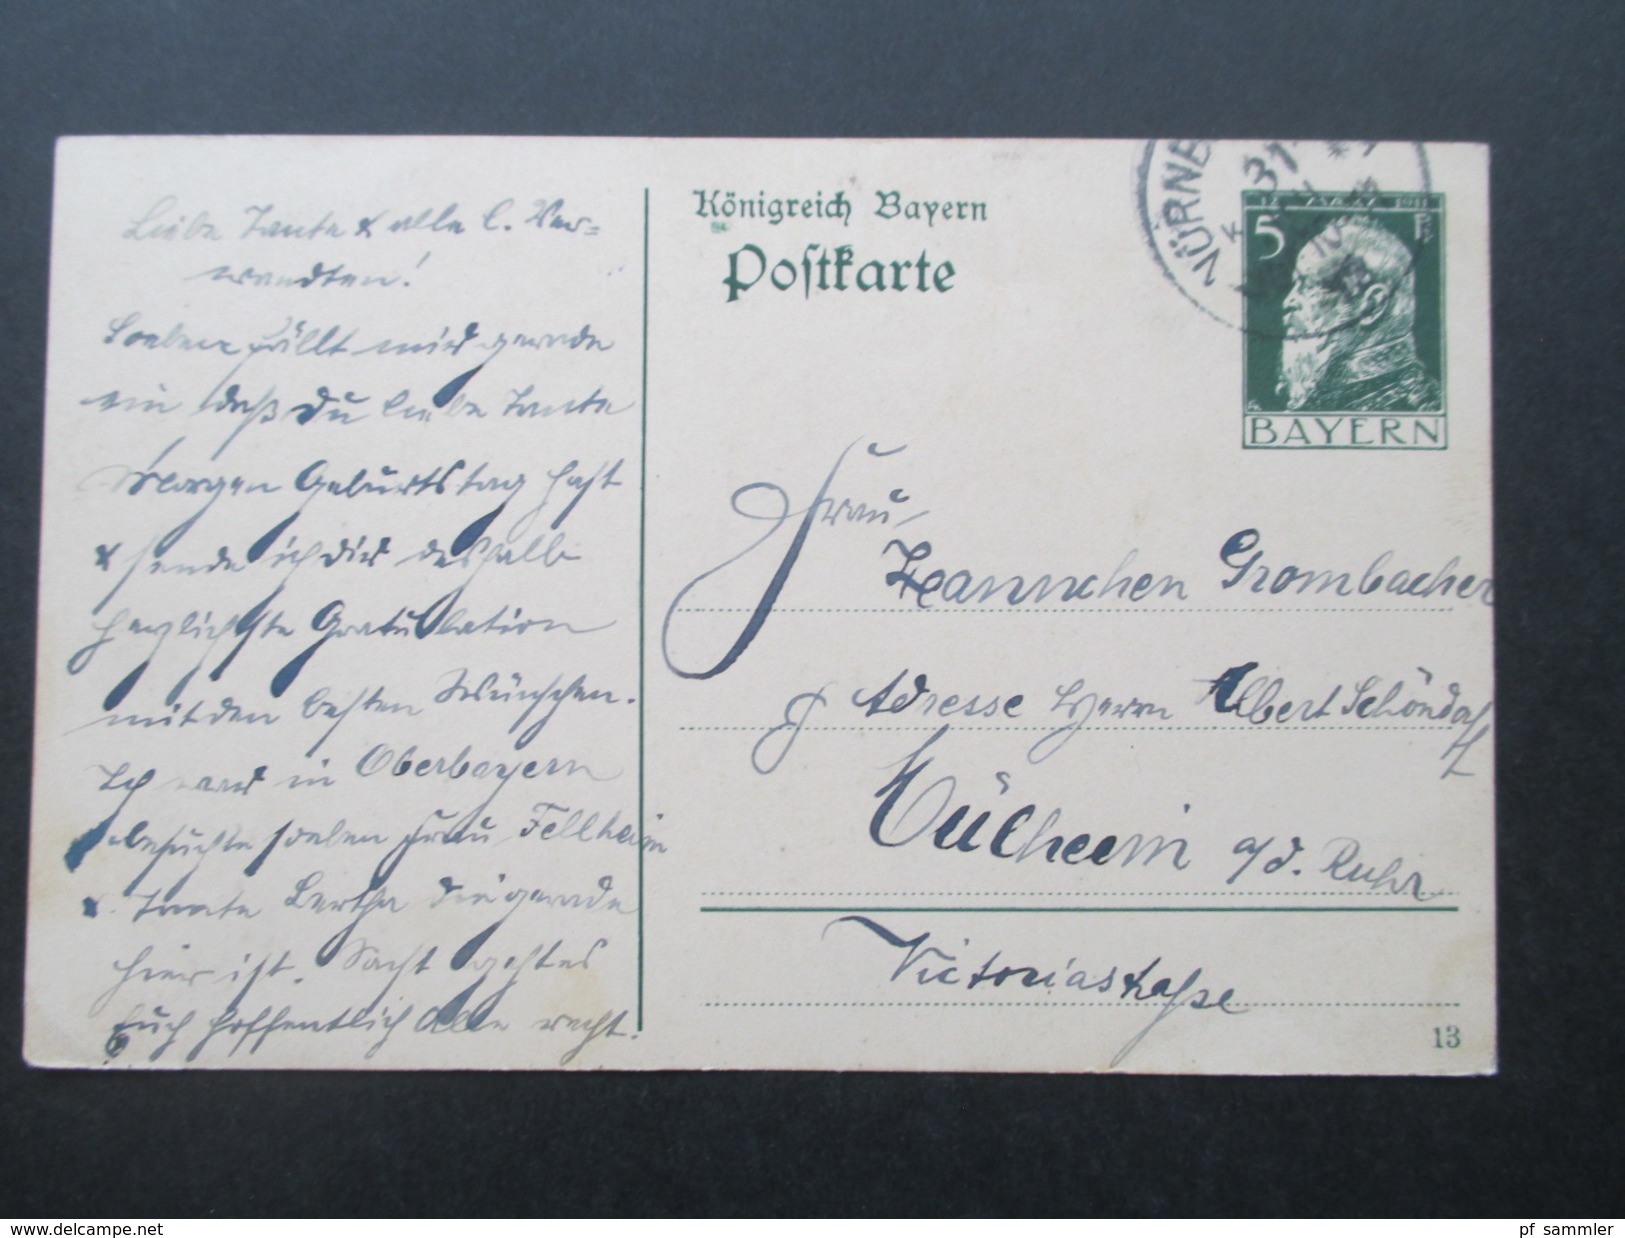 Liebe Tante & alle l. Ver=
wandten!
Soeben fällt mir gerade
ein daß Du liebe Tante
Morgen Geburtstag hast
& sende ich dir deshalb
herzlichste Gratulation
mit den besten Wünschen.
Ich war in Oberbayern
besuchte soeben Frau Fellheim
& Tante Bertha die gerade
hier ist.
Euch hoffentlich Alle recht.
Königreich Bayern
Postkarte
NÜRNB
5
1911
BAYERN
Frau
Hannchen Grombacher
Adresse Herrn Albert Schöndorff
Mülheim a/d. Ruhr
Victoriastraße
13
www.delcampe.net
pf_sammler